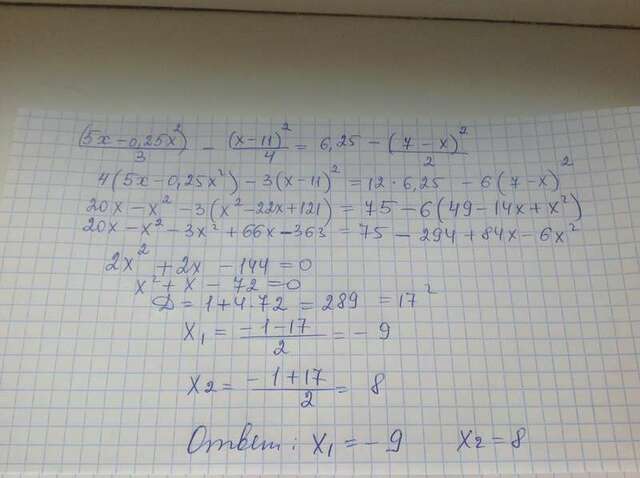 (5x-0,25x²)/3 - (x-11)²/4 = 6,25 - (7-x)²/2
4(5x-0,25x²)-3(x-11)²=12·6,25 -6(7-x)²
20x-x²-3(x²-22x+121)=75-6(49-14x+x²)
20x-x²-3x²+66x-363=75-294+84x-6x²
2x²+2x-144=0
x²+x-72=0
Д=1+4·72=289=17²
x₁=(-1-17)/2=-9
x₂=(-1+17)/2=8
Ответ: x₁=-9 x₂=8